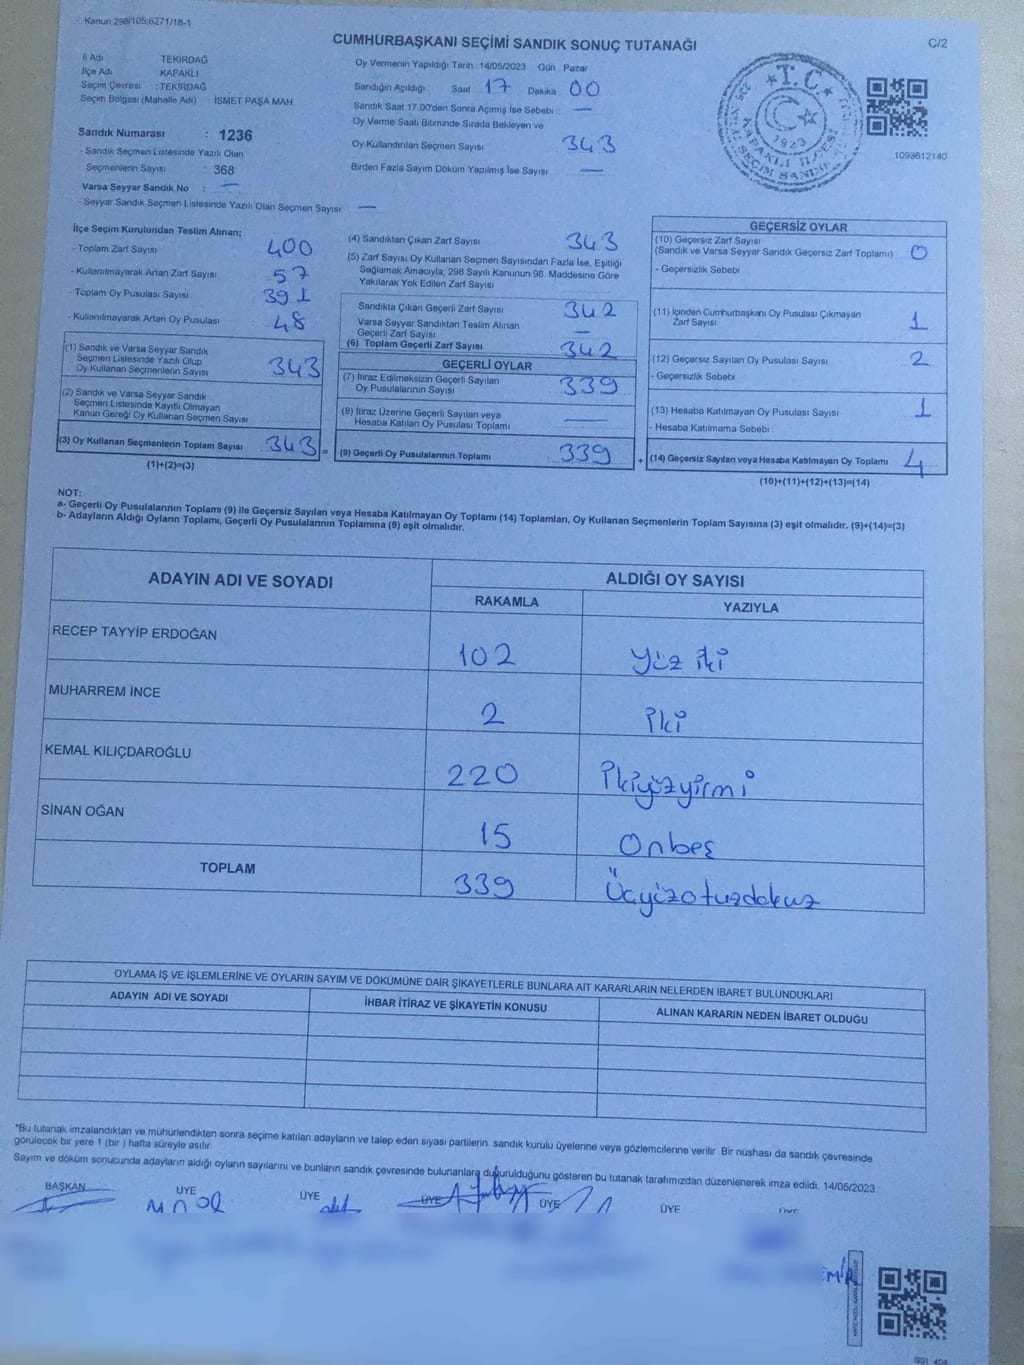 Kanun 298/105;6271/18-1
CUMHURBAŞKANI SEÇİMİ SANDIK SONUÇ TUTANAĞI
C/2
İl Adı : TEKİRDAĞ
İlçe Adı : KAPAKLI
Seçim Çevresi : TEKİRDAĞ
Seçim Bölgesi (Mahalle Adı) İSMET PAŞA MAH
Sandık Numarası : 1236
- Sandık Seçmen Listesinde Yazılı Olan
Seçmenlerin Sayısı : 368
Varsa Seyyar Sandık No : —
- Seyyar Sandık Seçmen Listesinde Yazılı Olan Seçmen Sayısı: —
Oy Vermenin Yapıldığı Tarih :14/05/2023 Gün : Pazar
Sandığın Açıldığı Saat 17 Dakika 00
Sandık Saat 17.00'den Sonra Açılmış İse Sebebi : —
Oy Verme Saati Bitiminde Sırada Bekleyen ve
Oy Kullandırılan Seçmen Sayısı 343
Birden Fazla Sayım Döküm Yapılmış İse Sayısı —
T.C.
1923
KAPAKLI İLÇESİ
1093612140
İlçe Seçim Kurulundan Teslim Alınan;
- Toplam Zarf Sayısı 400
- Kullanılmayarak Artan Zarf Sayısı 57
- Toplam Oy Pusulası Sayısı 391
- Kullanılmayarak Artan Oy Pusulası 48
(1) Sandık ve Varsa Seyyar Sandık
Seçmen Listesinde Yazılı Olup
Oy Kullanan Seçmenlerin Sayısı 343
(2) Sandık ve Varsa Seyyar Sandık
Seçmen Listesinde Kayıtlı Olmayan
Kanun Gereği Oy Kullanan Seçmen Sayısı
(3) Oy Kullanan Seçmenlerin Toplam Sayısı 343 =
(1)+(2)=(3)
(4) Sandıktan Çıkan Zarf Sayısı 343
(5) Zarf Sayısı Oy Kullanan Seçmen Sayısından Fazla İse, Eşitliği
Sağlamak Amacıyla; 298 Sayılı Kanunun 98. Maddesine Göre
Yakılarak Yok Edilen Zarf Sayısı
Sandıkta Çıkan Geçerli Zarf Sayısı 342
Varsa Seyyar Sandıktan Teslim Alınan
Geçerli Zarf Sayısı —
(6) Toplam Geçerli Zarf Sayısı 342
GEÇERLİ OYLAR
(7) İtiraz Edilmeksizin Geçerli Sayılan
Oy Pusulalarının Sayısı 339
(8) İtiraz Üzerine Geçerli Sayılan veya
Hesaba Katılan Oy Pusulası Toplamı —
(9) Geçerli Oy Pusulalarının Toplamı 339 +
GEÇERSİZ OYLAR
(10) Geçersiz Zarf Sayısı
(Sandık ve Varsa Seyyar Sandık Geçersiz Zarf Toplamı) 0
- Geçersizlik Sebebi
(11) İçinden Cumhurbaşkanı Oy Pusulası Çıkmayan
Zarf Sayısı 1
(12) Geçersiz Sayılan Oy Pusulası Sayısı 2
- Geçersizlik Sebebi
(13) Hesaba Katılmayan Oy Pusulası Sayısı 1
- Hesaba Katılmama Sebebi :
(14) Geçersiz Sayılan veya Hesaba Katılmayan Oy Toplamı 4
(10)+(11)+(12)+(13)=(14)
NOT:
a- Geçerli Oy Pusulalarının Toplamı (9) ile Geçersiz Sayılan veya Hesaba Katılmayan Oy Toplamı (14) Toplamları, Oy Kullanan Seçmenlerin Toplam Sayısına (3) eşit olmalıdır. (9)+(14)=(3)
b- Adayların Aldığı Oyların Toplamı, Geçerli Oy Pusulalarının Toplamına (9) eşit olmalıdır.
ADAYIN ADI VE SOYADI
ALDIĞI OY SAYISI
RAKAMLA YAZIYLA
RECEP TAYYİP ERDOĞAN 102 Yüz iki
MUHARREM İNCE 2 İki
KEMAL KILIÇDAROĞLU 220 İkiyüzyirmi
SİNAN OĞAN 15 Onbeş
TOPLAM 339 Üçyüzotuzdokuz
OYLAMA İŞ VE İŞLEMLERİNE VE OYLARIN SAYIM VE DÖKÜMÜNE DAİR ŞİKAYETLERLE BUNLARA AİT KARARLARIN NELERDEN İBARET BULUNDUKLARI
ADAYIN ADI VE SOYADI İHBAR İTİRAZ VE ŞİKAYETİN KONUSU ALINAN KARARIN NEDEN İBARET OLDUĞU
*Bu tutanak imzalandıktan ve mühürlendikten sonra seçime katılan adayların ve talep eden siyasi partilerin sandık kurulu üyelerine veya gözlemcilerine verilir. Bir nüshası da sandık çevresinde
görülecek bir yere 1 (bir ) hafta süreyle asılır.
Sayım ve döküm sonucunda adayların aldığı oyların sayılarını ve bunların sandık çevresinde bulunanlara duyurulduğunu gösteren bu tutanak tarafımızdan düzenlenerek imza edildi. 14/05/2023
BAŞKAN ÜYE ÜYE ÜYE ÜYE ÜYE ÜYE